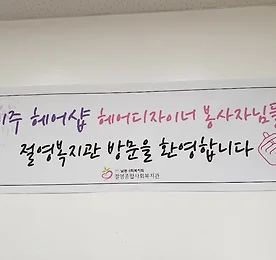 헤어샵 헤어디자이너 봉사자님들
절영복지관 방문을 환영합니다
절영종합사회복지관